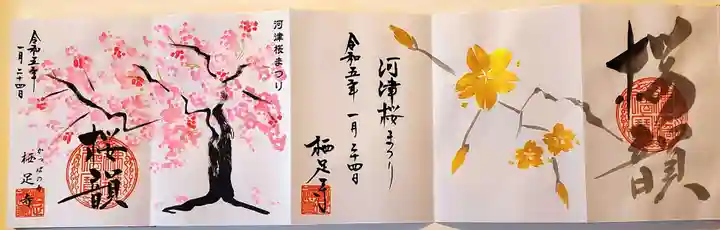 桜韻
河津桜まつり
令和五年 一月二十四日
栖足寺
河津桜まつり
桜韻
令和五年
一月二十四日
かっぱの寺
栖足寺